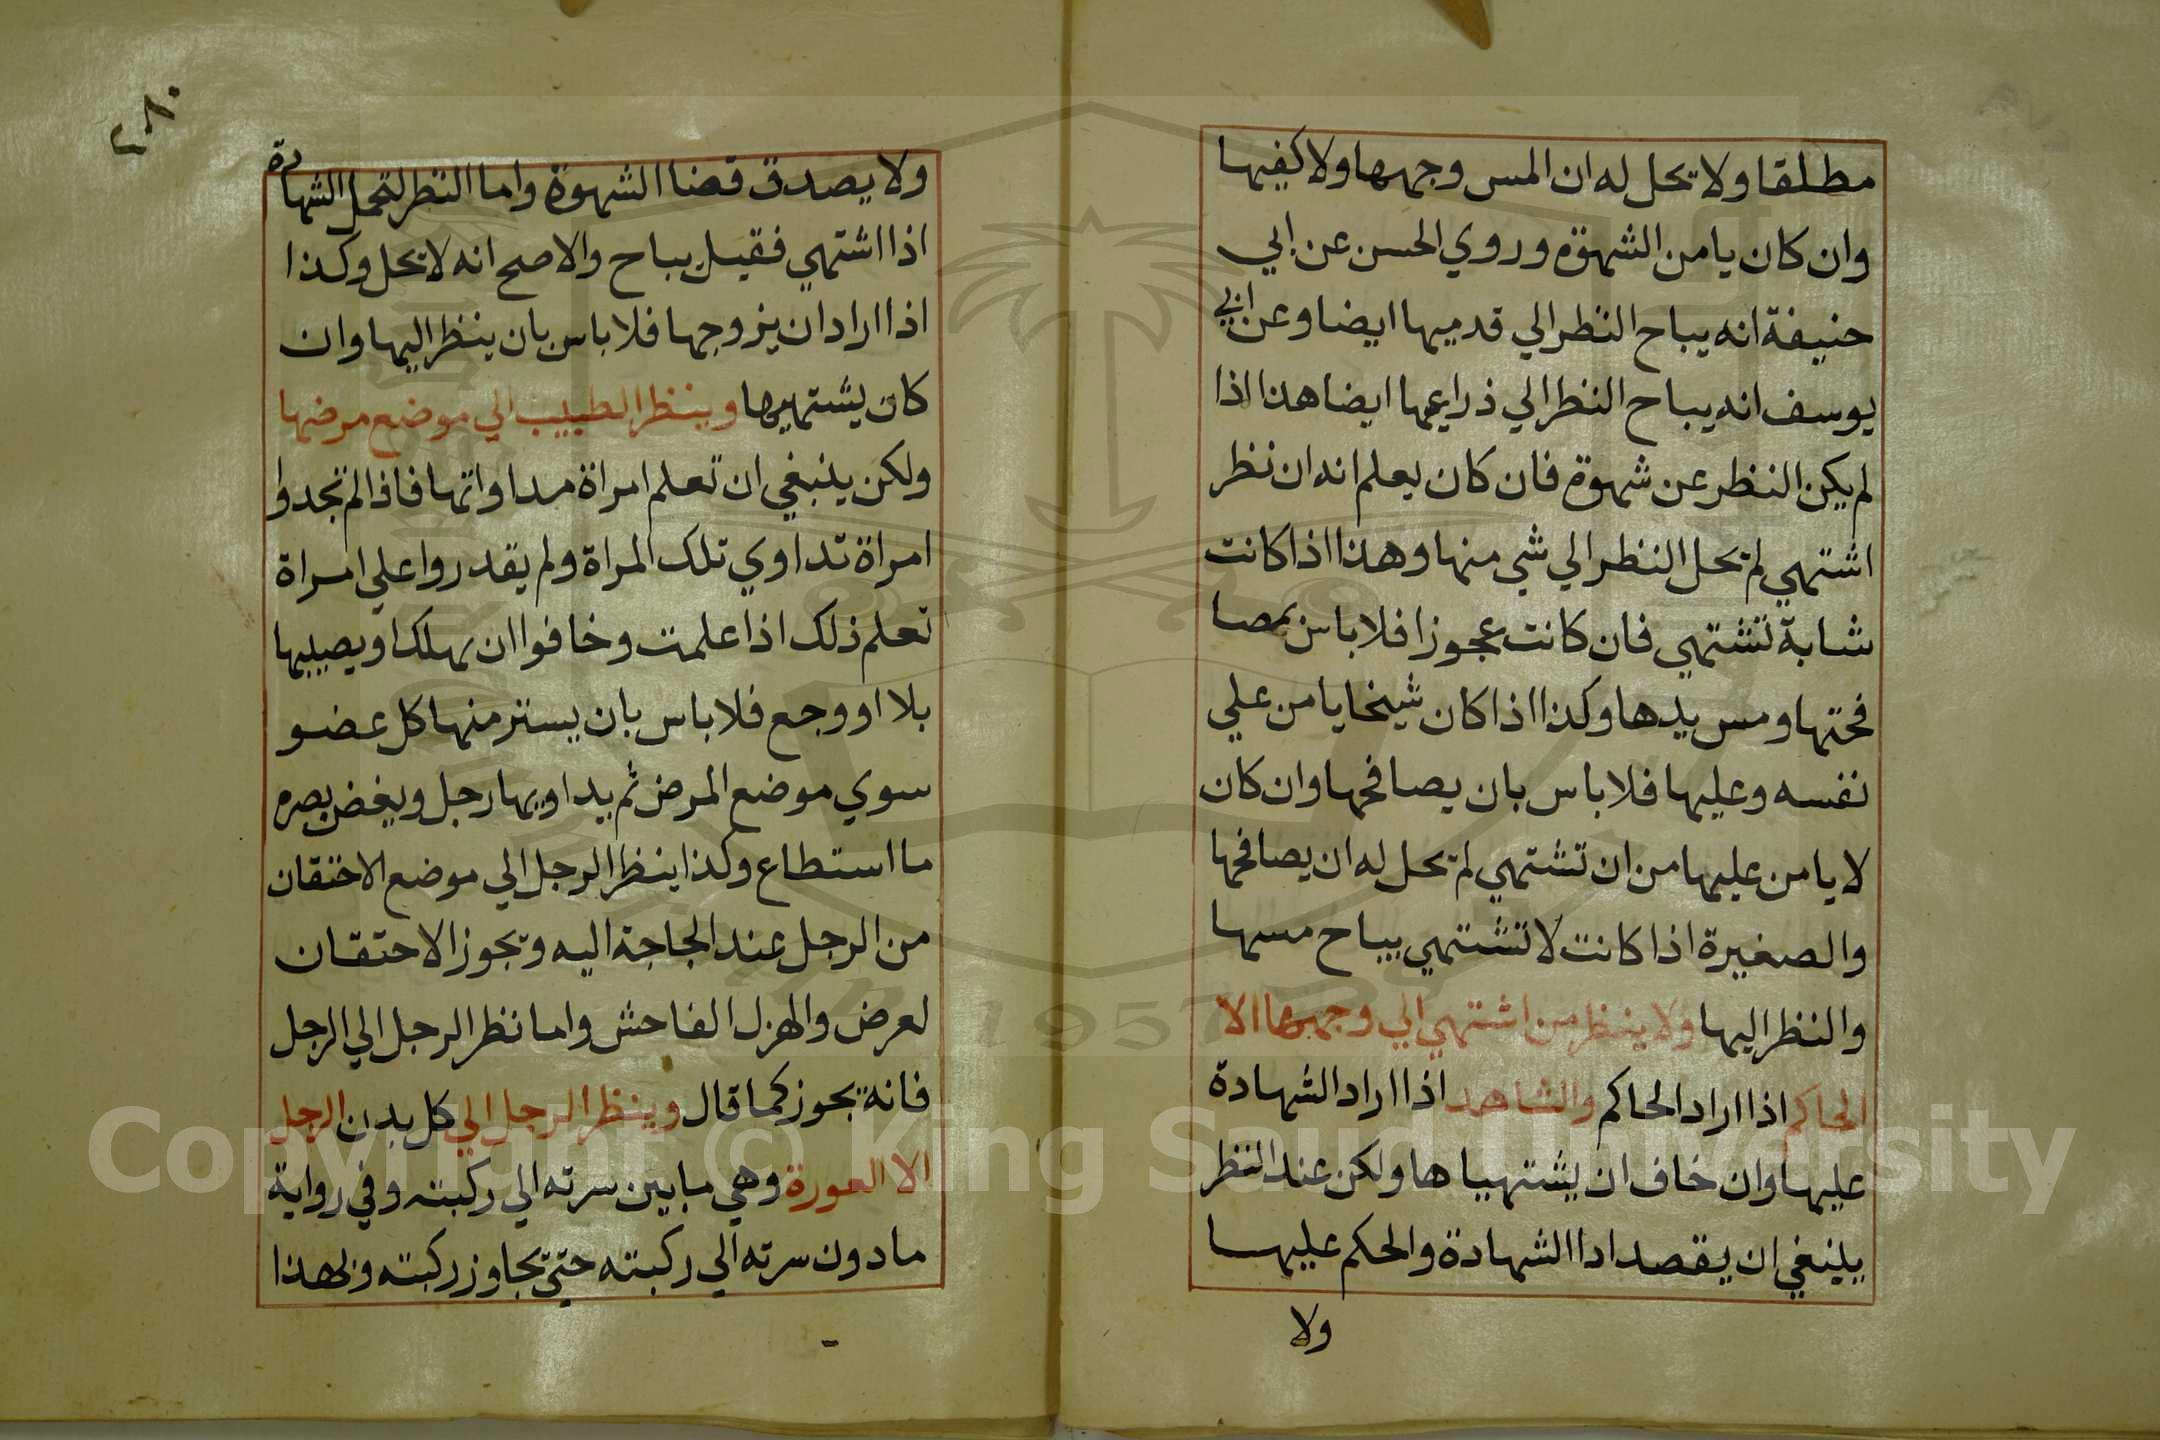 مطلقا ولا يحل له ان المس وجهها ولا كفيها
وان كان يامن الشهوة وروي الحسن عن ابي
حنيفة انه يباح النظر الي قدميها ايضا وعن ابي
يوسف انه يباح النظر الي ذراعيها ايضا هذا اذا
لم يكن النظر عن شهوة فان كان يعلم انه ان نظر
اشتهي لم يحل النظر الي شي منها وهذا اذا كانت
شابة تشتهي فان كانت عجوزا فلا باس بمصا
فحتها ومس يدها وكذا اذا كان شيخا يامن علي
نفسه وعليها فلا باس بان يصافحها وان كان
لا يامن عليها من ان تشتهي لم يحل له ان يصافحها
والصغيرة اذا كانت لا تشتهي يباح مسها
والنظر اليها ولا ينظر من اشتهي الي وجهها الا
الحاكم اذا اراد الحاكم والشاهد اذا اراد الشهادة
عليها وان خاف ان يشتهياها ولكن عند النظر
يلينغي ان يقصد ادا الشهادة والحكم عليها
ولا
٢٨٠
ولا يصدق قضا الشهوة واما النظر لتحمل الشهادة
اذا اشتهي فقيل يباح والاصح انه لا يحل وكذا
اذا اراد ان يزوجها فلا باس بان ينظر اليها وان
كان يشتهيها وينظر الطبيب الي موضع مرضها
ولكن ينبغي ان تعلم امراة مداواتها فاذا لم تجدوا
امراة تداوي تلك المراة ولم يقدروا علي امراة
تعلم ذلك اذا علمت وخافوا ان يهلك او يصيبها
بلا او وجع فلا باس بان يستتر منها كل عضو
سوي موضع المرض ثم يداويها رجل ويغض بصره
ما استطاع وكذا ينظر الرجل الي موضع الاختقان
من الرجل عند الحاجة اليه ويجوز الاحتقان
لعرض والهزل الفاحش واما نظر الرجل الي الرجل
فانه يجوز كما قال وينظر الرجل الي كل بدن الرجل
الا العورة وهي ما بين سرته الي ركبته وفي رواية
ما دون سرته الي ركبته حتي يجاوز ركبته وبهذا
Copyright © King Saud University
1957